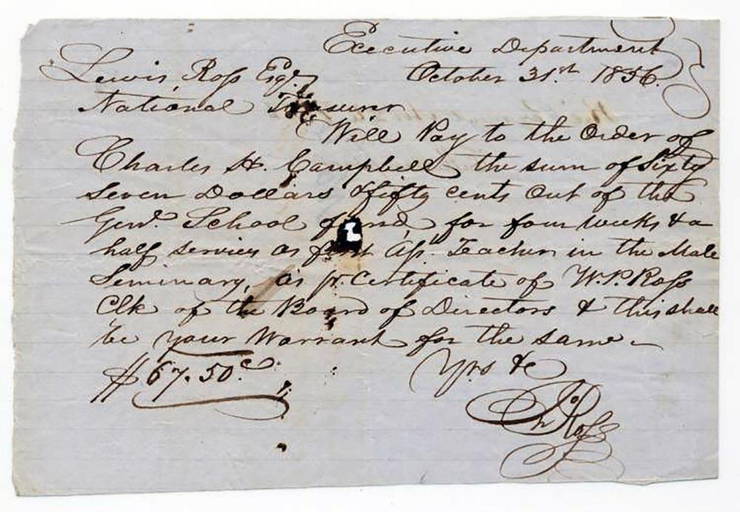 Executive Department
October 31st. 1856.
Lewis Ross Esqr
National Treasurer
Will Pay to the Order of
Charles H. Campbell the sum of Sixty
Seven Dollars & fifty cents Out of the
Genl. School fund, for four weeks & a
half services as first Ass Teacher in the Male
Seminary, as pr. Certificate of W.P. Ross
Clk of the Board of Directors & this shall
be your Warrant for the same.
$67.50c. Yrs &c
Jno Ross